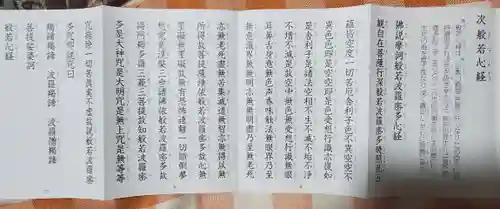 次般若心経
佛説摩訶般若波羅蜜多心経
観自在菩薩行深般若波羅蜜多時照見五
蘊皆空度一切苦厄舎利子色不異空空不
異色色即是空空即是色受想行識亦復如
是舎利子是諸法空相不生不滅不垢不浄
不増不減是故空中無色無受想行識無眼
耳鼻舌身意無色声香味触法無眼界乃至
無意識界無無明亦無無明尽乃至無老死
亦無老死尽無苦集滅道無智亦無得以無
所得故菩提薩埵依般若波羅蜜多故心無
罣礙無罣礙故無有恐怖遠離一切顛倒夢
想究竟涅槃三世諸佛依般若波羅蜜多故
得阿耨多羅三藐三菩提故知般若波羅蜜
多是大神咒是大明咒是無上咒是無等等
咒能除一切苦真実不虚故説般若波羅蜜
多咒即説咒曰
羯諦羯諦　波羅羯諦　波羅僧羯諦
菩提娑婆訶
般若心経